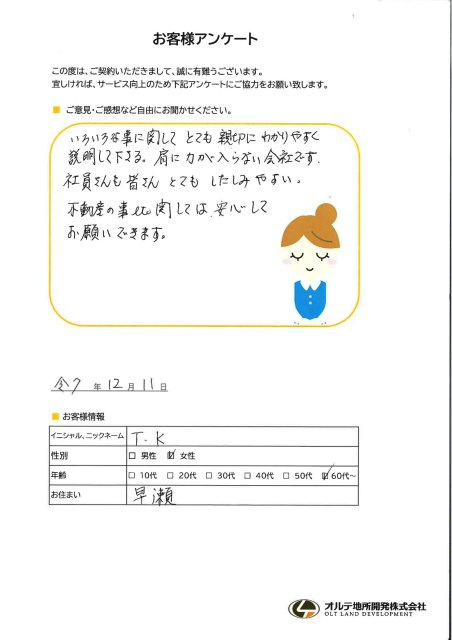 お客様アンケート
この度は、ご契約いただきまして、誠に有難うございます。
宜しければ、サービス向上のため下記アンケートにご協力をお願い致します。
■ ご意見・ご感想など自由にお聞かせください。
いろいろな事に関して とても 親切に わかりやすく
説明して下さる。肩に力が入らない会社です.
社員さんも皆さん とても したしみやすい。
不動産の事etc関しては、安心して
お願いできます。
令7 年 12 月 11 日
■ お客様情報
イニシャル、ニックネーム T.K
性別 □ 男性 ☑ 女性
年齢 □ 10代 □ 20代 □ 30代 □ 40代 □ 50代 ☑ 60代～
お住まい 早瀬
オルテ地所開発株式会社
OLT LAND DEVELOPMENT